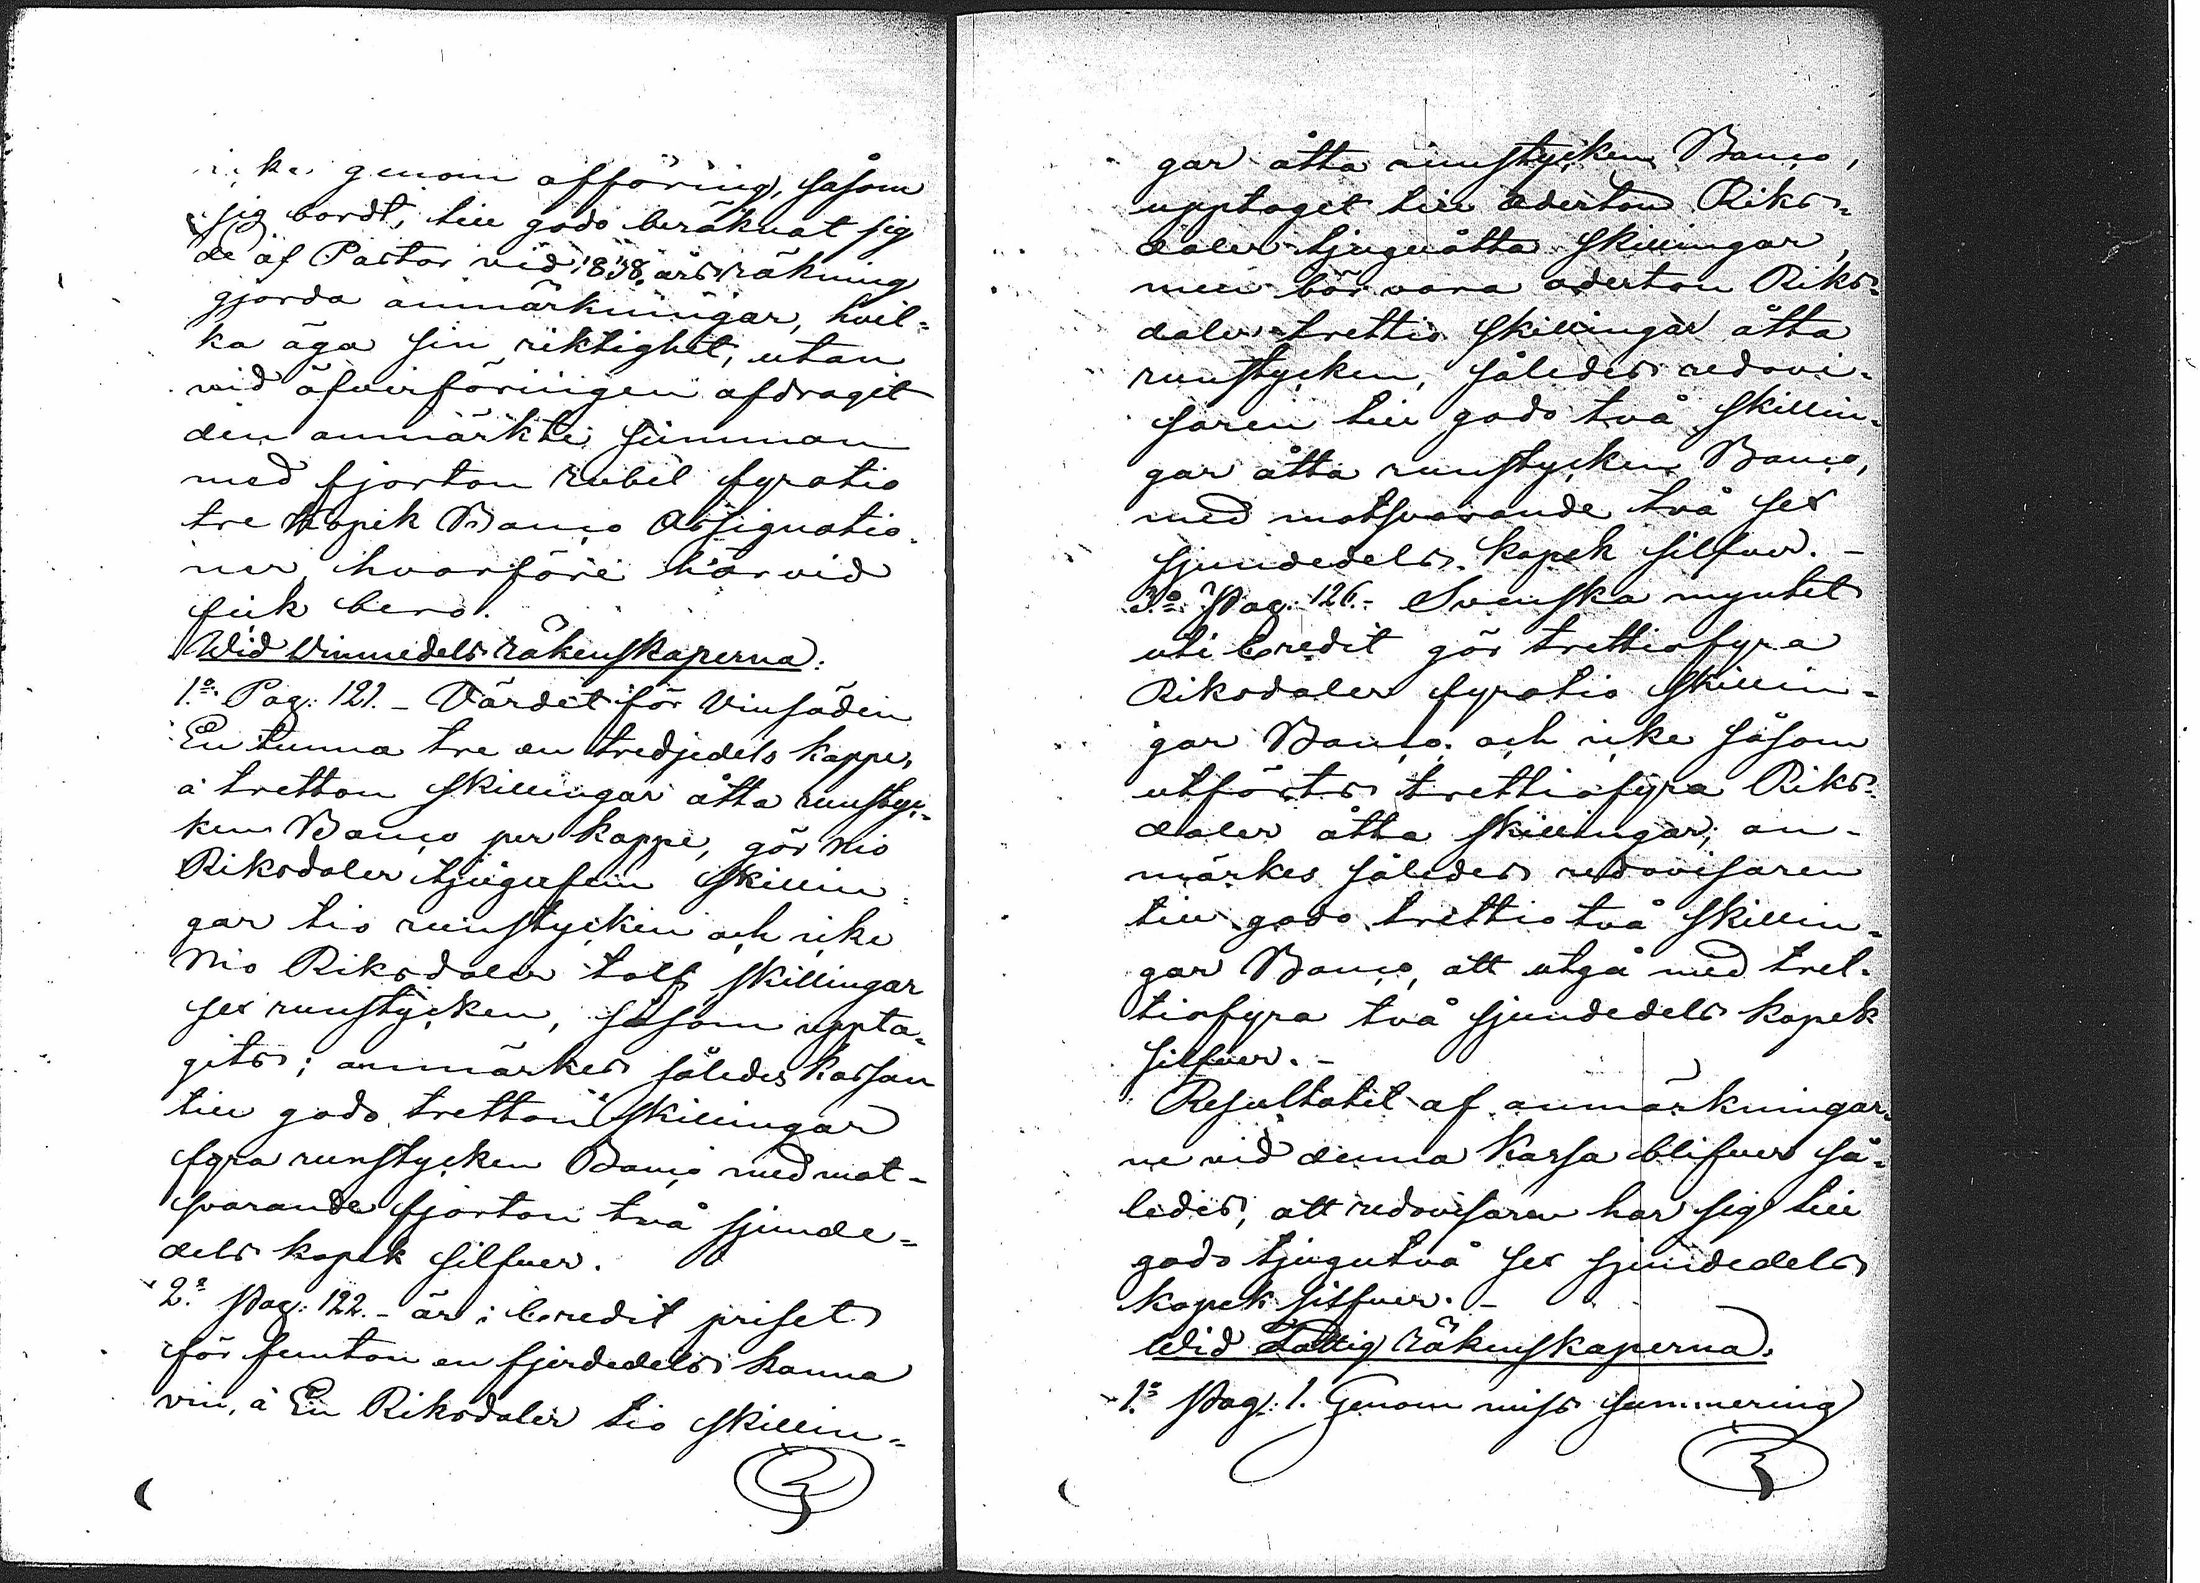 icke genom afföring, såsom
sig bordt, till godo beräknat sig
de af Pastor vid 1838 års räkning
gjorda anmärkningar, hvil-
ka äga sin riktighet, utan
vid öfverföringen afdragit
den anmärkte summan
med fjorton rubel fyratio
tre kopek Banco Assignatio-
ner, hvarföre härvid
fick bero.
Wid Vinmedels räkenskaperna:
1o Pag: 121. - Värdet för Vinsäden
En tunna tre en tredjedels kappe,
à tretton skillingar åtta runstyc-
ken Banco per kappe, gör nio
Riksdaler tjugufem skillin-
gar tio runstycken och icke
nio Riksdaler tolf skillingar
sex runstycken, såsom uppta-
gits; anmärkes således kassan
till godo tretton skillingar
fyra runstycken Banco med mot-
svarande fjorton två sjunde-
dels kopek silfver.
2o Pag: 122. - är i Credit priset
för femton en fjerdedels kanna
vin, à En Riksdaler tio skillin-
gar åtta runstycken Banco,
upptaget till aderton Riks-
daler tjuguåtta skillingar,
men bör vara aderton Riks-
daler trettio skillingar åtta
runstycken, således redovi-
saren till godo två skillin-
gar åtta runstycken Banco,
med motsvarande två sex
sjundedels kopek silfver. -
3o Pag: 126. - Svenska myntet
uti Credit gör trettiofyra
Riksdaler fyratio skillin-
gar Banco och icke såsom
utförts trettiofyra Riks-
daler åtta skillingar; an-
märkes således redovisaren
till godo trettiotvå skillin-
gar Banco, att utgå med tret-
tiofyra två sjundedels kopek
silfver. -
Resultatet af anmärkningar-
ne vid denna Kassa blifver så-
ledes, att redovisaren har sig till
godo tjugutvå sex sjundedels
kopek silfver. -
Wid Fattig räkenskaperna.
1o Pag: 1. Genom miss summering